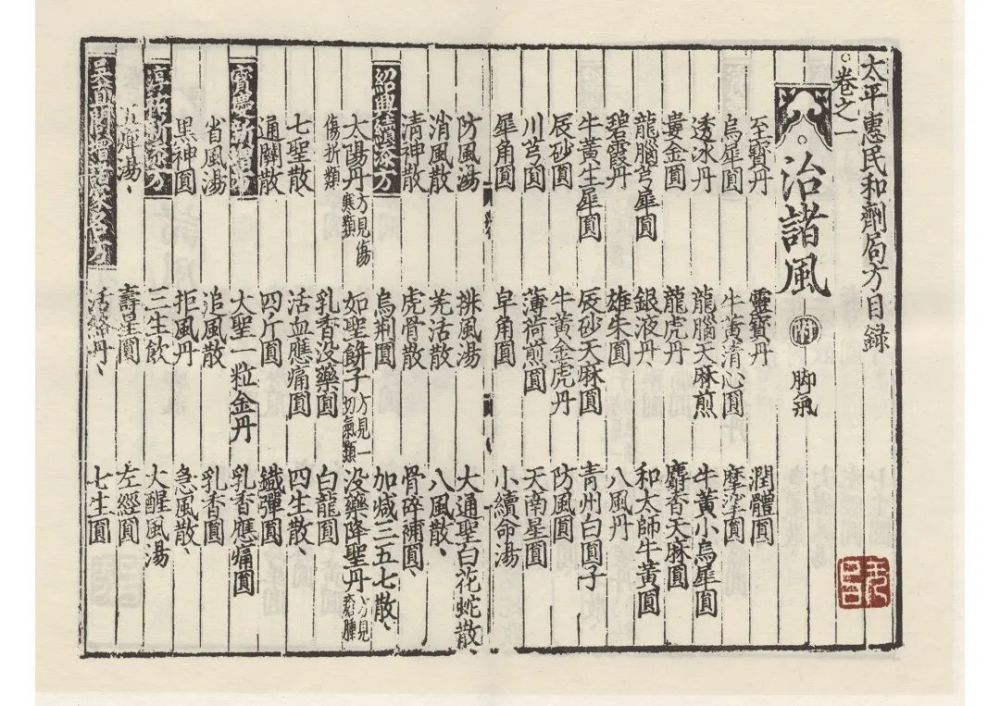 太平惠民和劑局方目錄
卷之一
治諸風 附 脚氣
至寶丹 靈寶丹 潤體圓
烏犀圓 牛黃清心圓 摩挲圓
透冰丹 龍腦天麻煎 牛黃小烏犀圓
婁金圓 龍虎丹 麝香天麻圓
龍腦芎犀圓 銀液丹 和太師牛黃圓
碧霞丹 雄朱圓 八風丹
牛黃生犀圓 辰砂天麻圓 青州白圓子
辰砂圓 牛黃金虎丹 防風圓
川芎圓 薄荷煎圓 天南星圓
犀角圓 皁角圓 小續命湯
防風湯 排風湯 大通聖白花蛇散、
消風散 羌活散 八風散、
清神散 虎骨散 骨碎補圓、
紹興續添方 烏荊圓 加減三五七散、
太陽丹方見傷寒類 如聖餅子方見一切氣類 沒藥降聖丹方見瘡腫
傷折類 乳香沒藥圓 白龍圓
七聖散、 活血應痛圓 四生散、
通關散 四斤圓 鐵彈圓
寶慶新增方 大聖一粒金丹 乳香應痛圓
省風湯 追風散 乳香圓
黑神圓 拒風丹 急風散、
淳祐新添方 三生飲 大醒風湯
五痺湯、 壽星圓 左經圓
吳直閣增諸家名方 活絡丹、 七生圓